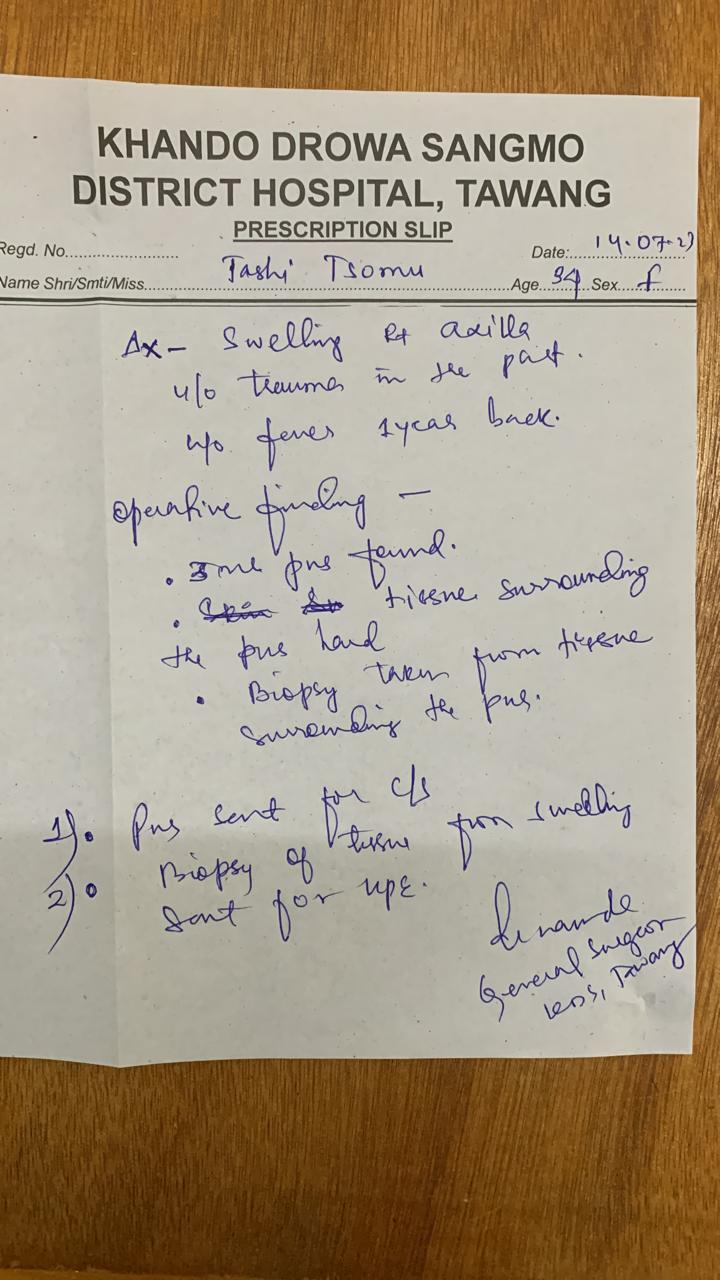 KHANDO DROWA SANGMO
DISTRICT HOSPITAL, TAWANG
PRESCRIPTION SLIP
Regd. No.............................. Date: 14.07.2
Name Shri/Smti/Miss Tashi Tsomu Age 34 Sex f
Δx - Swelling Rt axilla
H/o trauma in the past.
H/o fever 1 year back.
Operative finding -
• 3 ml pus found.
• tissue surrounding
the pus hard
• Biopsy taken from tissue
surrounding the pus.
1). Pus sent for c/s
2). Biopsy of tissue from swelling
sent for HPE.
General Surgeon
KDS, Tawang